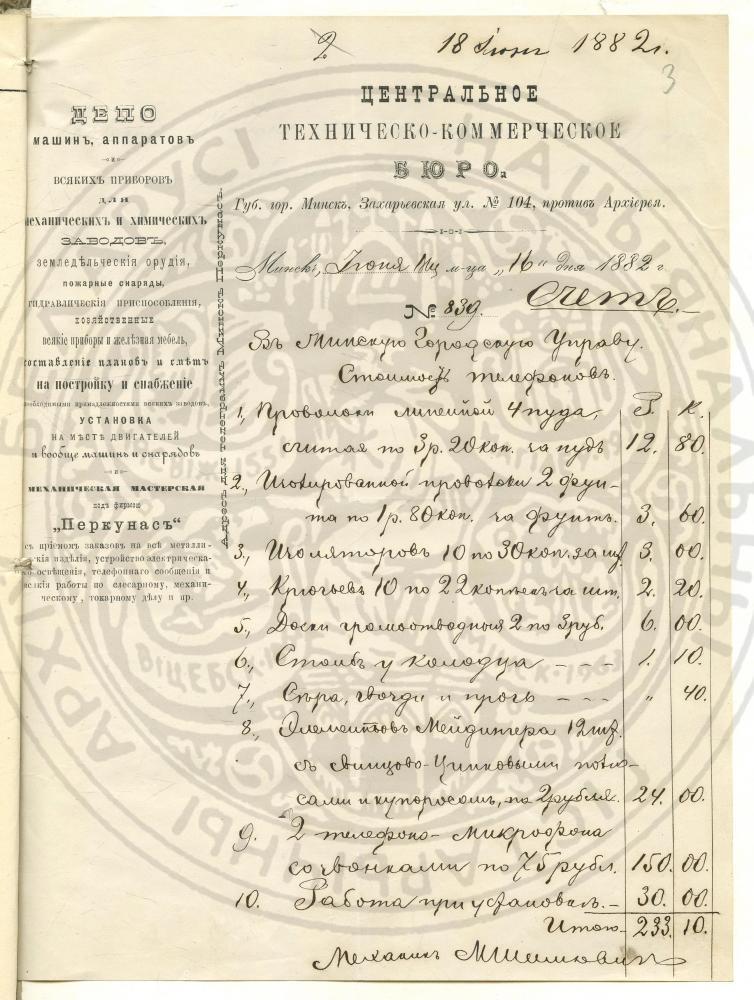 2
18 Іюня 1882 г.
3
ДЕПО
машинъ, аппаратовъ
и
ВСЯКИХЪ ПРИБОРОВЪ
для
механическихъ и химическихъ
ЗАВОДОВЪ,
земледѣльческія орудія,
пожарные снаряды,
гидравлическія приспособленія,
хозяйственные
всякіе приборы и желѣзная мебель,
составленіе плановъ и смѣтъ
на постройку и снабженіе
необходимыми принадлежностями всякихъ заводовъ,
УСТАНОВКА
НА МѢСТѢ ДВИГАТЕЛЕЙ
и вообще машинъ и снарядовъ
и
МЕХАНИЧЕСКАЯ МАСТЕРСКАЯ
подъ фирмою
„Перкунасъ“
съ пріемомъ заказовъ на всѣ металли-
ческія издѣлія, устройство электрическа-
го освѣщенія, телефоннаго сообщенія и
всякія работы по слесарному, механи-
ческому, токарному дѣлу и пр.
ЦЕНТРАЛЬНОЕ
ТЕХНИЧЕСКО-КОММЕРЧЕСКОЕ
БЮРО
Губ. гор. Минскъ, Захарьевская ул. № 104, противъ Архіерея.
Минскъ, Іюня м-ца „16“ дня 1882 г
Счетъ.
№ 839.
Въ Минскую Городскую Управу.
Стоимость телефоновъ.
Р. К.
1., Проволоки линейной 4 пуда,
считая по 3 р. 20 коп. за пудъ 12. 80.
2., Изолированной проволоки 2 фун-
та по 1 р. 80 коп. за фунтъ. 3. 60.
3., Изоляторовъ 10 по 30 коп. за шт. 3. 00.
4., Крючьевъ 10 по 22 копѣекъ за шт. 2. 20.
5., Доски громоотводныя 2 по 3 руб. 6. 00.
6., Столбъ у колодца - - - 1. 10.
7., Сѣра, гвозди и проч. - - - „ 40.
8., Элементовъ Мейдингера 12 шт.
съ свинцово-цинковыми полю-
сами и купоросомъ, по 2 рубля. 24. 00.
9. 2 телефоно-микрофона
со звонками по 75 рубл. 150. 00.
10. Работа при установкѣ. - 30. 00.
Итого - 233. 10.
Механикъ